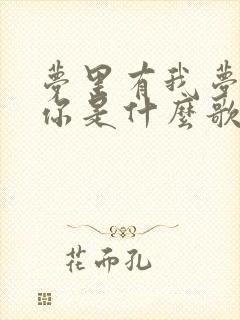 夢里有我夢
你是什麼歌
花而孔